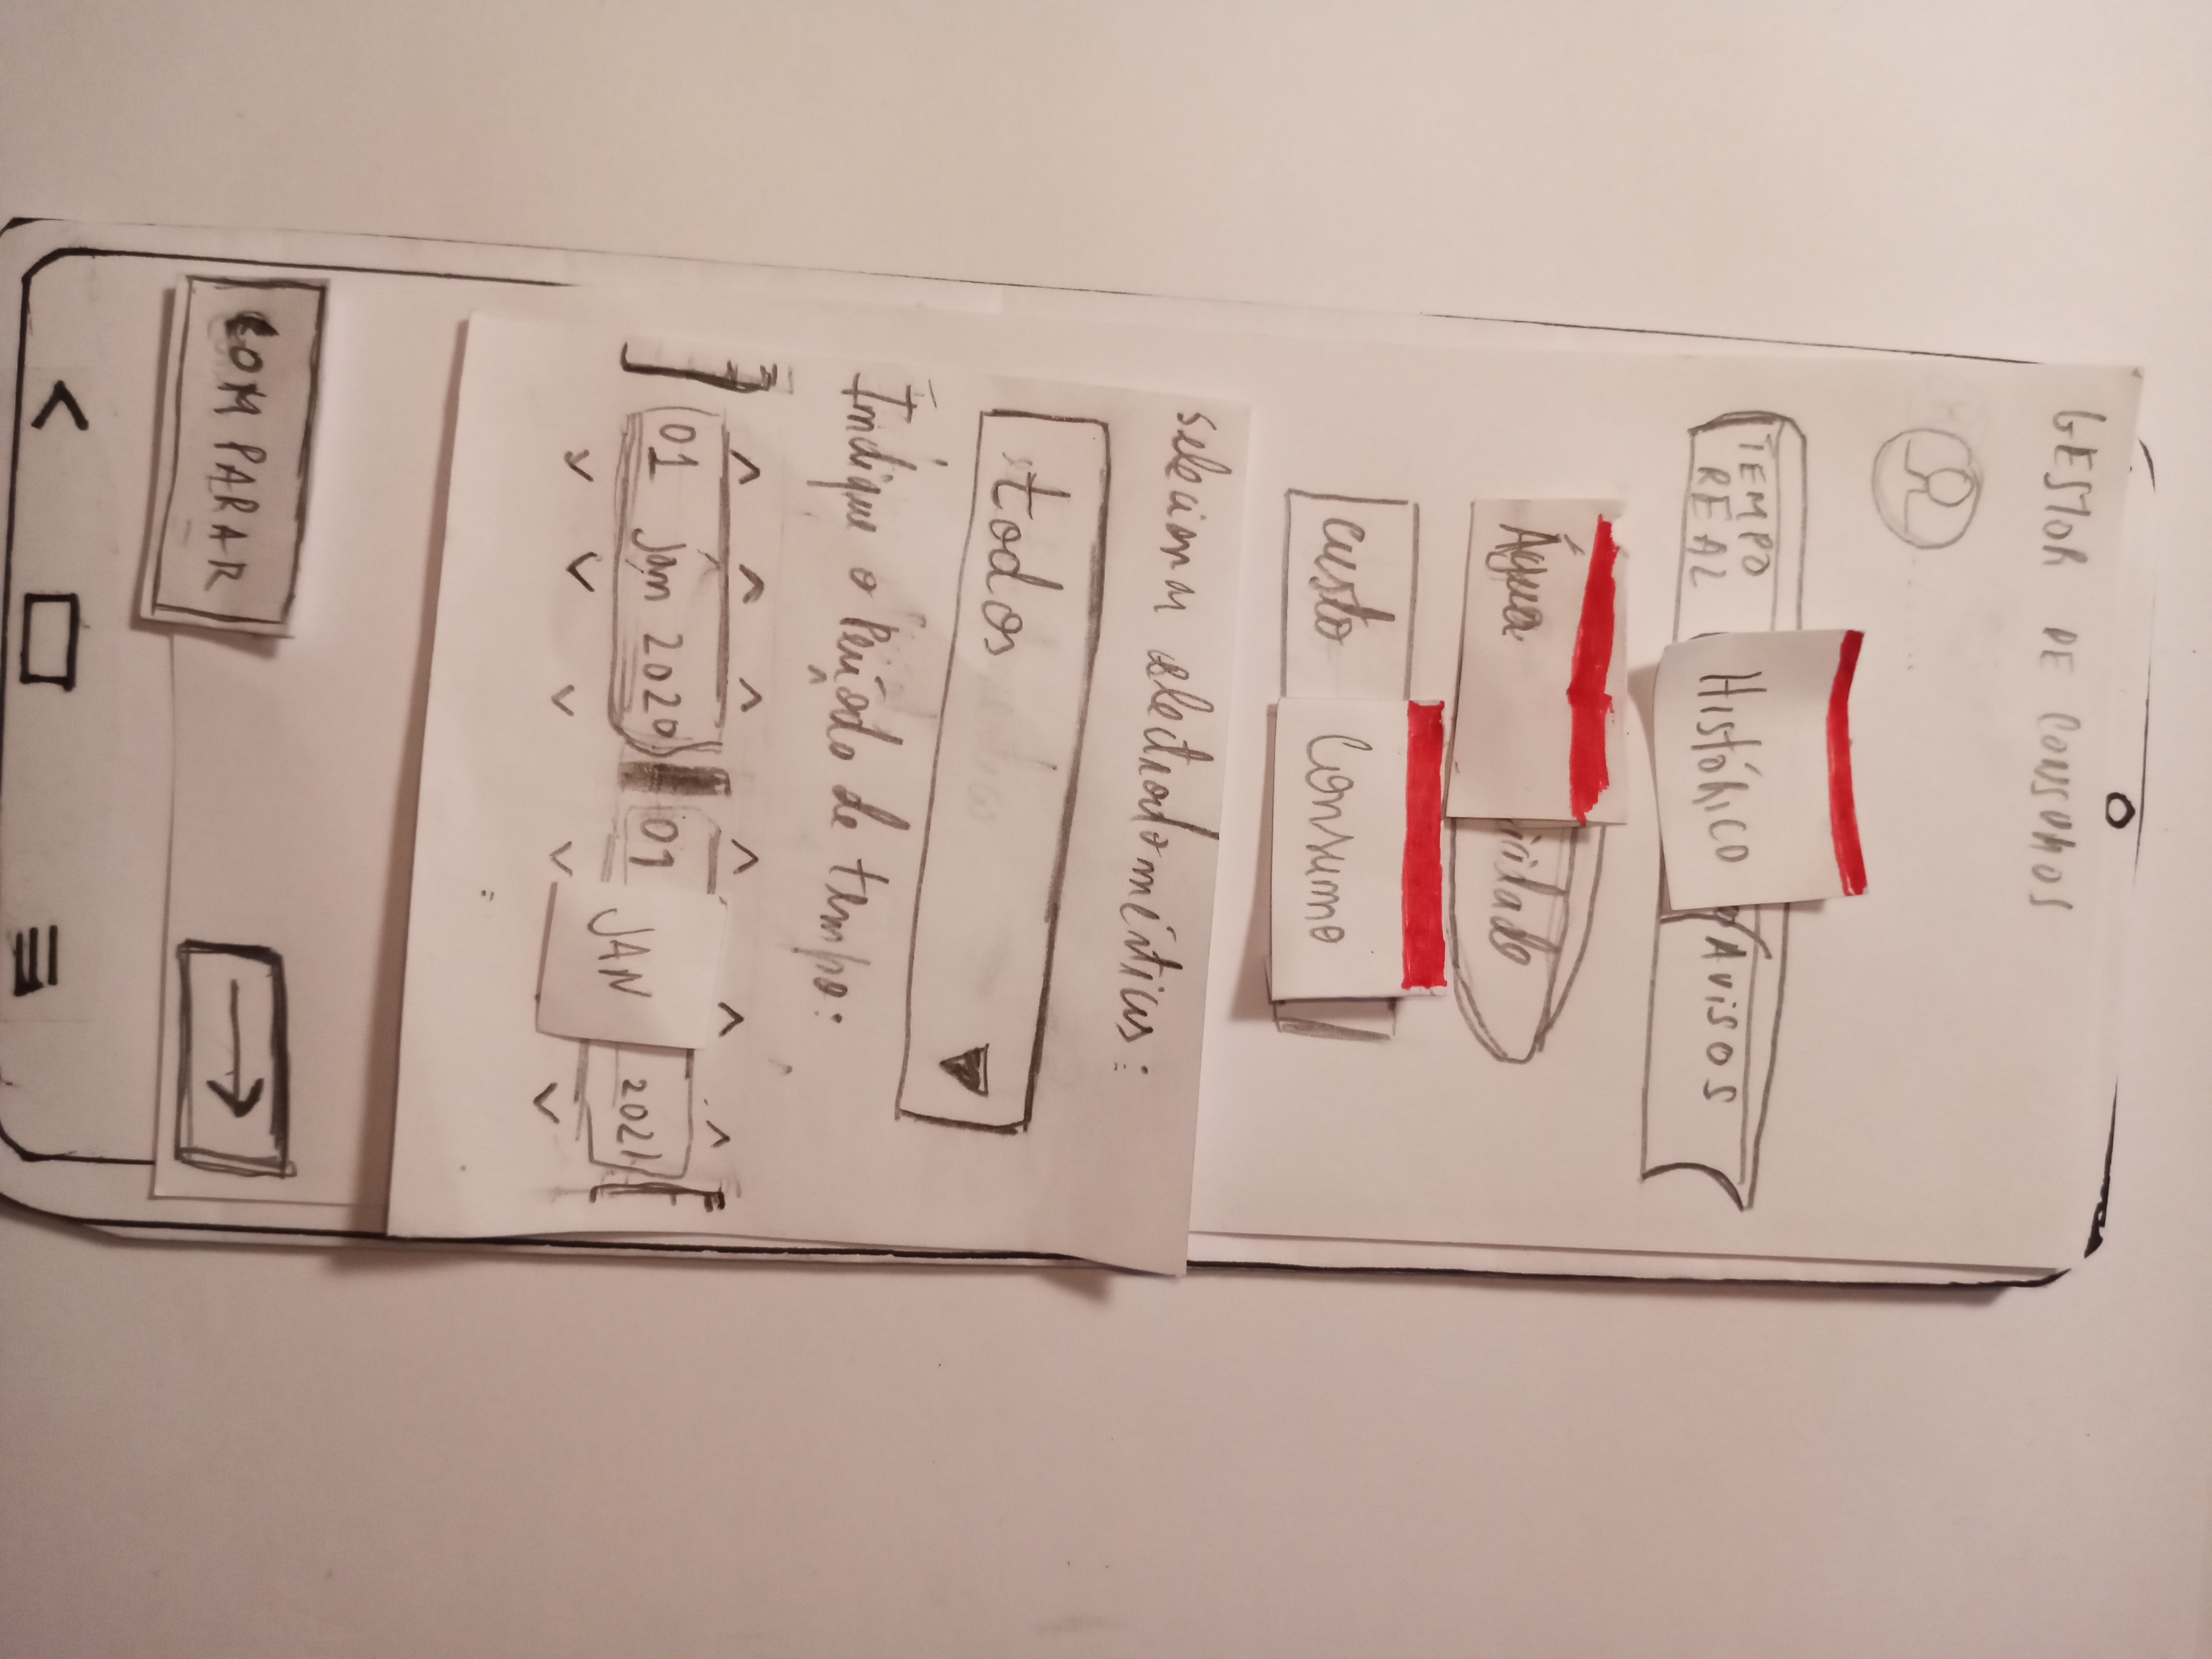 GESTOR DE CONSUMOS
TEMPO
REAL
Histórico
AVISOS
Água
cidade
custo
Consumo
selecionar eletrodomésticos:
todos
Indique o Período de tempo:
01 Jan 2020
01 JAN 2021
COMPARAR